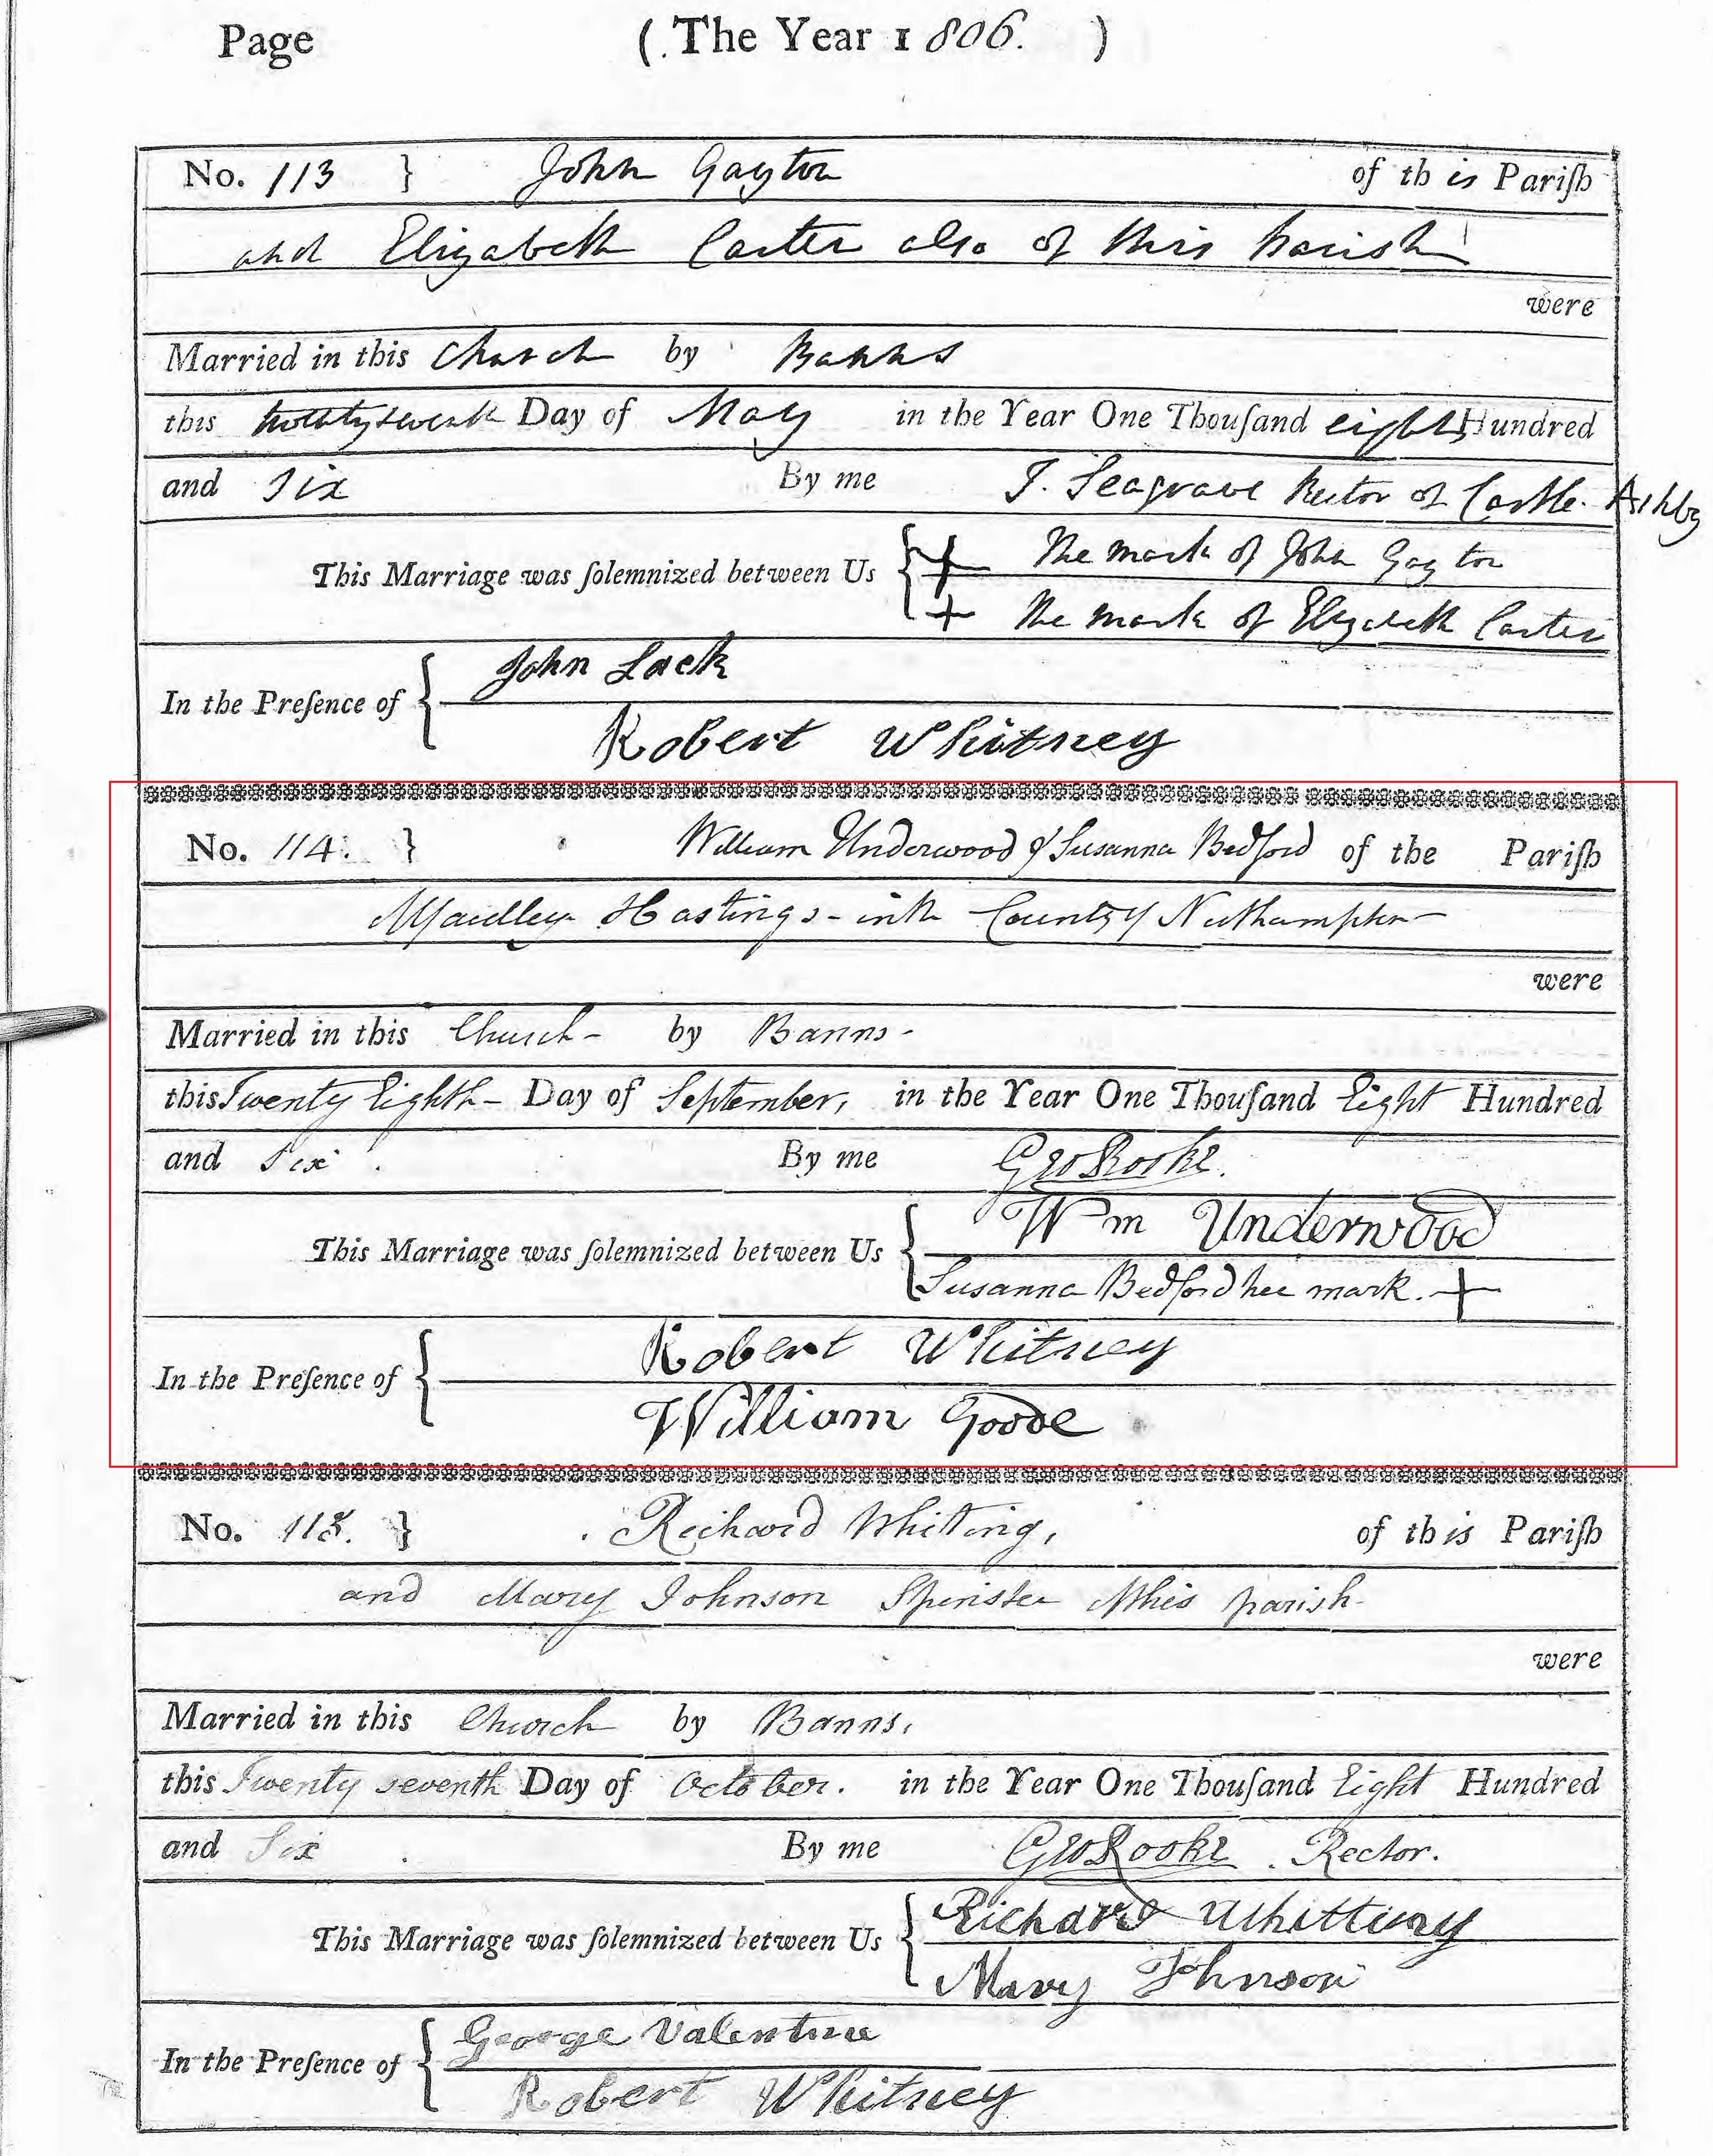 Page (The Year 1806. )
No. 113 } John Gayton of this Pariſh
and Elizabeth Carter also of this Parish
were
Married in this Church by Banns
this twentyseventh Day of May in the Year One Thouſand eight Hundred
and Six By me J. Seagrave Rector of Castle Ashby
This Marriage was ſolemnized between Us { + The mark of John Gayton
+ The mark of Elizabeth Carter
In the Preſence of { John Lack
Robert Whitney
No. 114. } William Underwood & Susanna Bedford of the Pariſh
Yardley Hastings - in the County of Northampton
were
Married in this Church - by Banns -
this Twenty Eighth - Day of September, in the Year One Thouſand Eight Hundred
and Six. By me Geo Rooke.
This Marriage was ſolemnized between Us { Wm Underwood
Susanna Bedford her mark. +
In the Preſence of { Robert Whitney
William Goode
No. 115. } Richard Whitting, of this Pariſh
and Mary Johnson Spinster of this parish
were
Married in this Church by Banns,
this Twenty seventh Day of October. in the Year One Thouſand Eight Hundred
and Six By me Geo Rooke. Rector.
This Marriage was ſolemnized between Us { Richard Whitting
Mary Johnson
In the Preſence of { George Valentine
Robert Whitney